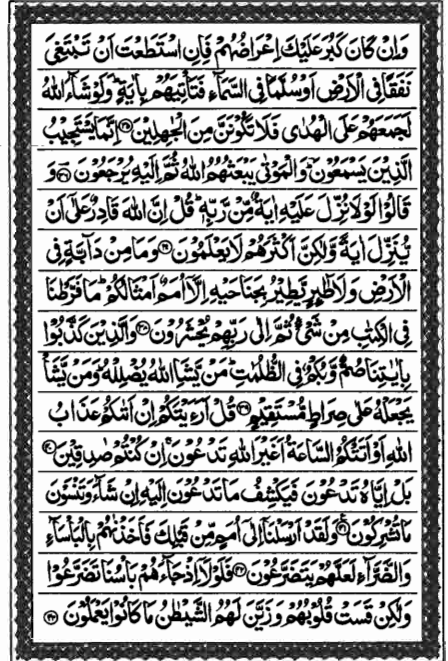 وَاِنْ كَانَ كَبُرَ عَلَيْكَ اِعْرَاضُهُمْ فَاِنِ اسْتَطَعْتَ اَنْ تَبْتَغِيَ
نَفَقًا فِي الْاَرْضِ اَوْ سُلَّمًا فِي السَّمَآءِ فَتَاْتِيَهُمْ بِاٰيَةٍ ؕ وَلَوْ شَآءَ اللّٰهُ
لَجَمَعَهُمْ عَلَى الْهُدٰى فَلَا تَكُوْنَنَّ مِنَ الْجٰهِلِيْنَ ﴿۳۵﴾ اِنَّمَا يَسْتَجِيْبُ
الَّذِيْنَ يَسْمَعُوْنَ ؔؕ وَالْمَوْتٰى يَبْعَثُهُمُ اللّٰهُ ثُمَّ اِلَيْهِ يُرْجَعُوْنَ ﴿۳۶﴾ وَ
قَالُوْا لَوْلَا نُزِّلَ عَلَيْهِ اٰيَةٌ مِّنْ رَّبِّهٖ ؕ قُلْ اِنَّ اللّٰهَ قَادِرٌ عَلٰٓى اَنْ
يُّنَزِّلَ اٰيَةً وَّلٰكِنَّ اَكْثَرَهُمْ لَا يَعْلَمُوْنَ ﴿۳۷﴾ وَمَا مِنْ دَآبَّةٍ فِي
الْاَرْضِ وَلَا طٰٓئِرٍ يَّطِيْرُ بِجَنَاحَيْهِ اِلَّاۤ اُمَمٌ اَمْثَالُكُمْ ؕ مَا فَرَّطْنَا
فِي الْكِتٰبِ مِنْ شَيْءٍ ثُمَّ اِلٰى رَبِّهِمْ يُحْشَرُوْنَ ﴿۳۸﴾ وَالَّذِيْنَ كَذَّبُوْا
بِاٰيٰتِنَا صُمٌّ وَّبُكْمٌ فِي الظُّلُمٰتِ ؕ مَنْ يَّشَاِ اللّٰهُ يُضْلِلْهُ ؕ وَمَنْ يَّشَاْ
يَجْعَلْهُ عَلٰى صِرَاطٍ مُّسْتَقِيْمٍ ﴿۳۹﴾ قُلْ اَرَءَيْتَكُمْ اِنْ اَتٰىكُمْ عَذَابُ
اللّٰهِ اَوْ اَتَتْكُمُ السَّاعَةُ اَغَيْرَ اللّٰهِ تَدْعُوْنَ ۚ اِنْ كُنْتُمْ صٰدِقِيْنَ ﴿۴۰﴾
بَلْ اِيَّاهُ تَدْعُوْنَ فَيَكْشِفُ مَا تَدْعُوْنَ اِلَيْهِ اِنْ شَآءَ وَتَنْسَوْنَ
مَا تُشْرِكُوْنَ ﴿۴۱﴾ وَلَقَدْ اَرْسَلْنَاۤ اِلٰۤى اُمَمٍ مِّنْ قَبْلِكَ فَاَخَذْنٰهُمْ بِالْبَاْسَآءِ
وَالضَّرَّآءِ لَعَلَّهُمْ يَتَضَرَّعُوْنَ ﴿۴۲﴾ فَلَوْلَاۤ اِذْ جَآءَهُمْ بَاْسُنَا تَضَرَّعُوْا
وَلٰكِنْ قَسَتْ قُلُوْبُهُمْ وَزَيَّنَ لَهُمُ الشَّيْطٰنُ مَا كَانُوْا يَعْمَلُوْنَ ﴿۴۳﴾